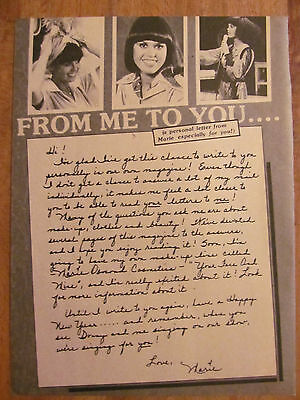 FROM ME TO YOU....
(a personal letter from
Marie especially for you!)
Hi!
I'm glad I've got this chance to write to you
personally in our own magazine! Even though
I don't get a chance to answer a lot of my mail
individually, it makes me feel a lot closer to
you to be able to read your letters to me!
Many of the questions you ask me are about
make-up, clothes and beauty! I've devoted
several pages of this magazine to the answers,
and I hope you enjoy reading it! Soon, I'm
going to have my own make-up line called
"Marie Osmond Cosmetics – "Yours Free And
Nice", and I'm really excited about it! Look
for more information about it.
Until I write to you again, have a Happy
New Year..... and remember, when you
see Donny and me singing on our show,
we're singing for you!
Love,
Marie